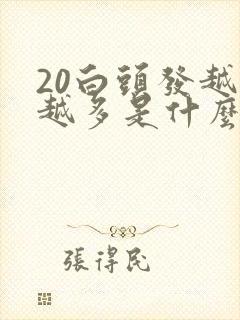 20白頭發越
越多是什麼
張得民